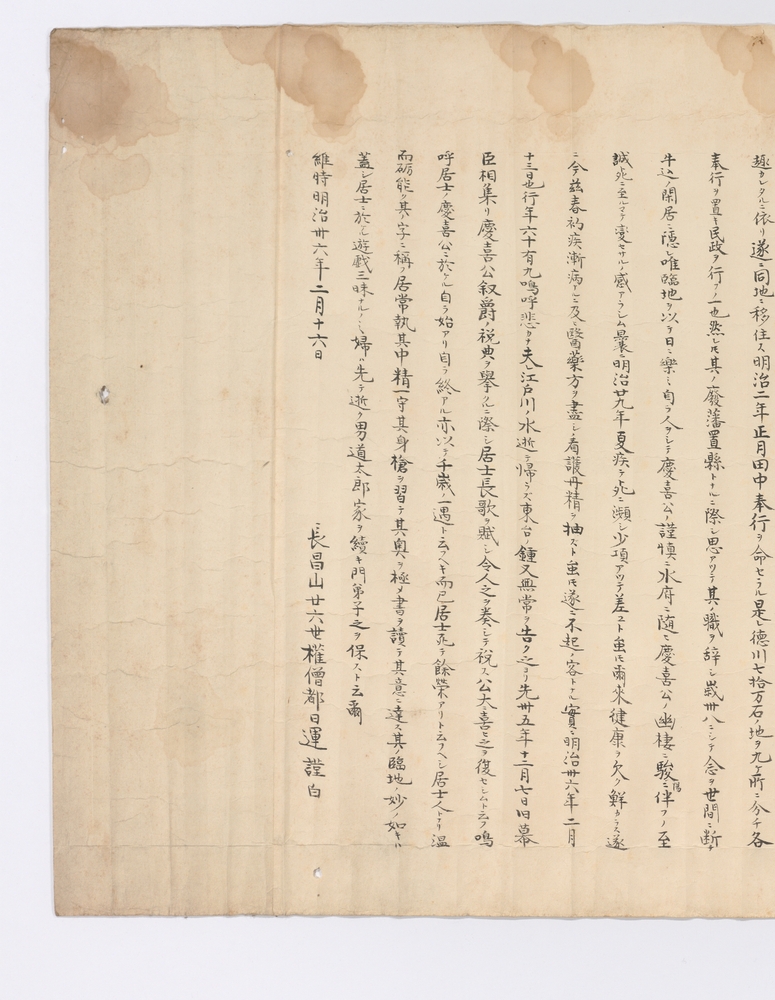 趣カレタルニ依リ遂ニ同地ニ移住ス明治二年正月田中奉行ヲ命セラル是レ徳川七拾万石ノ地ヲ九ヶ所ニ分チ各
奉行ヲ置キ民政ヲ行フノ一也然レ𪜈其ノ廢藩置縣トナルニ際シ思アツテ其ノ職ヲ辞シ嵗丗八ニシテ念ヲ世間ニ断チ
牛込ノ閑居ニ隱レ唯臨地ヲ以テ日ニ樂ミ自ラ人ヲシテ慶喜公ノ謹慎ニ水府ニ随ヒ慶喜公ノ幽棲ニ駿陽ニ伴フノ至
誠死ニ至ルマテ変セサルノ感アラシム曩ニ明治廿九年夏疾テ死ニ瀕シ少項アツテ差ユト虽𪜈爾来健康ヲ欠ク鮮カラス遂
ニ今茲春初疾漸ク病ナルニ及ヒ醫藥方ヲ盡シ看護丹精ヲ抽スト虽𪜈遂ニ不起ノ客トナル實ニ明治卅六年二月
十三日也行年六十有九嗚呼悲カナ夫レ江戸川ノ水逝テ帰ラス東台ノ鐘又無常ヲ告ク之ヨリ先卅五年十二月七日旧幕
臣相集リ慶喜公叙爵ノ祝典ヲ擧クルニ際シ居士長歌ヲ賦シ令人之ヲ奏シテ祝ス公大ニ喜ヒ之ヲ復セシムト云フ嗚
呼居士ノ慶喜公ニ於ケル自ラ始アリ自ラ終アル亦以テ千歳ノ一遇ト云フヘキ而已居士死テ餘榮アリト云フヘシ居士人トナリ温
而砺能ク其ノ字ニ稱フ居常執其中精一守其身槍ヲ習テ其奥ヲ極メ書ヲ讀テ其意ニ達ス其ノ臨地ノ妙ノ如キハ
蓋シ居士ニ於テハ遊戯三昧ナルノミ婦ハ先テ逝ク男道太郎家ヲ續キ門葉子之ヲ保スト云爾
維時明治卅六年二月十六日
長昌山廿六世權僧都日運謹白